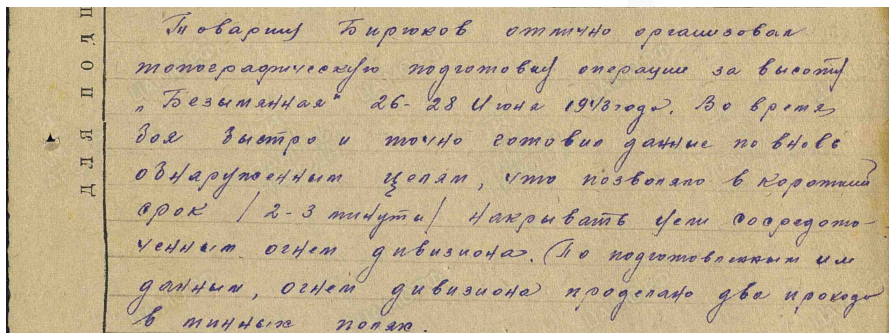 Товарищ Бирюков отлично организовал
топографическую подготовку операции за высоту
„Безымянная" 26-28 Июня 1943 года. Во время
боя быстро и точно готовил данные по вновь
обнаруженным целям, что позволяло в короткий
срок /2-3 минуты/ накрывать цели сосредото-
ченным огнем дивизиона. По подготовленным им
данным, огнем дивизиона проделано два прохода
в минных полях.
ДЛЯ ПОДП